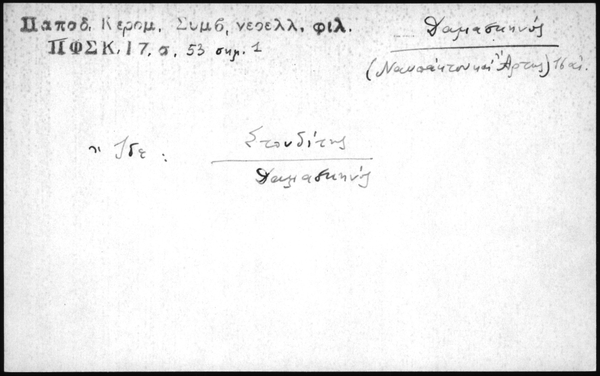 Παπαδ. Κεραμ. Συμβ. νεοελλ. φιλ.
ΠΦΣΚ. 17, σ. 53 σημ. 1
Δαμασκηνός
(Ναυπάκτου καὶ Ἄρτης) 16 αἰ.
Ἴδε :
Στουδίτης
Δαμασκηνός